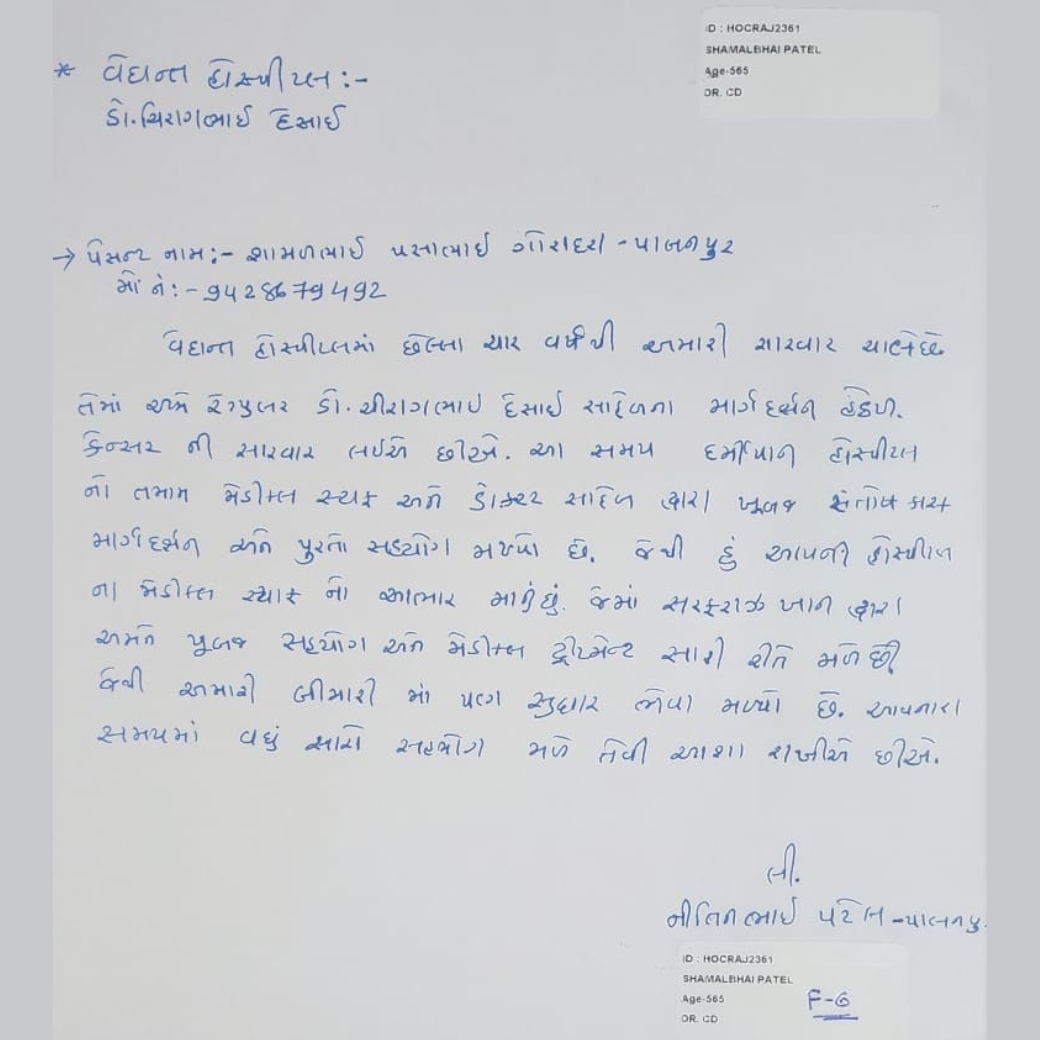 ID : HOCRAJ2361
SHAMALBHAI PATEL
Age-565
DR. CD
* વેદાન્ત હોસ્પીટલ :-
ડો. ચિરાગભાઈ દેસાઈ
→ પેસન્ટ નામ :- શામળભાઈ પસાભાઈ ગોરાદરા - પાલનપુર
મો નં :- 9428679492
વેદાન્ત હોસ્પીટલમાં છેલ્લા ચાર વર્ષથી અમારી સારવાર ચાલેછે
તેમાં અમે રેગ્યુલર ડો. ચીરાગભાઈ દેસાઈ સાહેબના માર્ગદર્સન હેઠળ.
કેન્સર ની સારવાર લઈએ છીએ. આ સમય દર્મીયાન હોસ્પીટલ
નો તમામ મેડીકલ સ્ટાફ અને ડોક્ટર સાહેબ દ્વારા ખૂબજ સંતોષકારક
માર્ગદર્સન અને પુરતો સહયોગ મળ્યો છે. જેથી હું આપની હોસ્પીટલ
ના મેડીકલ સ્ટાફ નો આભાર માનુંછું. જેમાં સરફરાઝ ખાન દ્વારા
અમને ખૂબજ સહયોગ અને મેડીકલ ટ્રીટમેન્ટ સારી રીતે મળે છે.
જેથી અમારી બીમારી માં પણ સુધાર જોવા મળ્યો છે. આવનારા
સમયમાં વધું સારો સહયોગ મળે તેવી આશા રાખીએ છીએ.
લી.
નીતિનભાઈ પટેલ - પાલનપુ
ID : HOCRAJ2361
SHAMALBHAI PATEL
Age-565
DR. CD
F-6